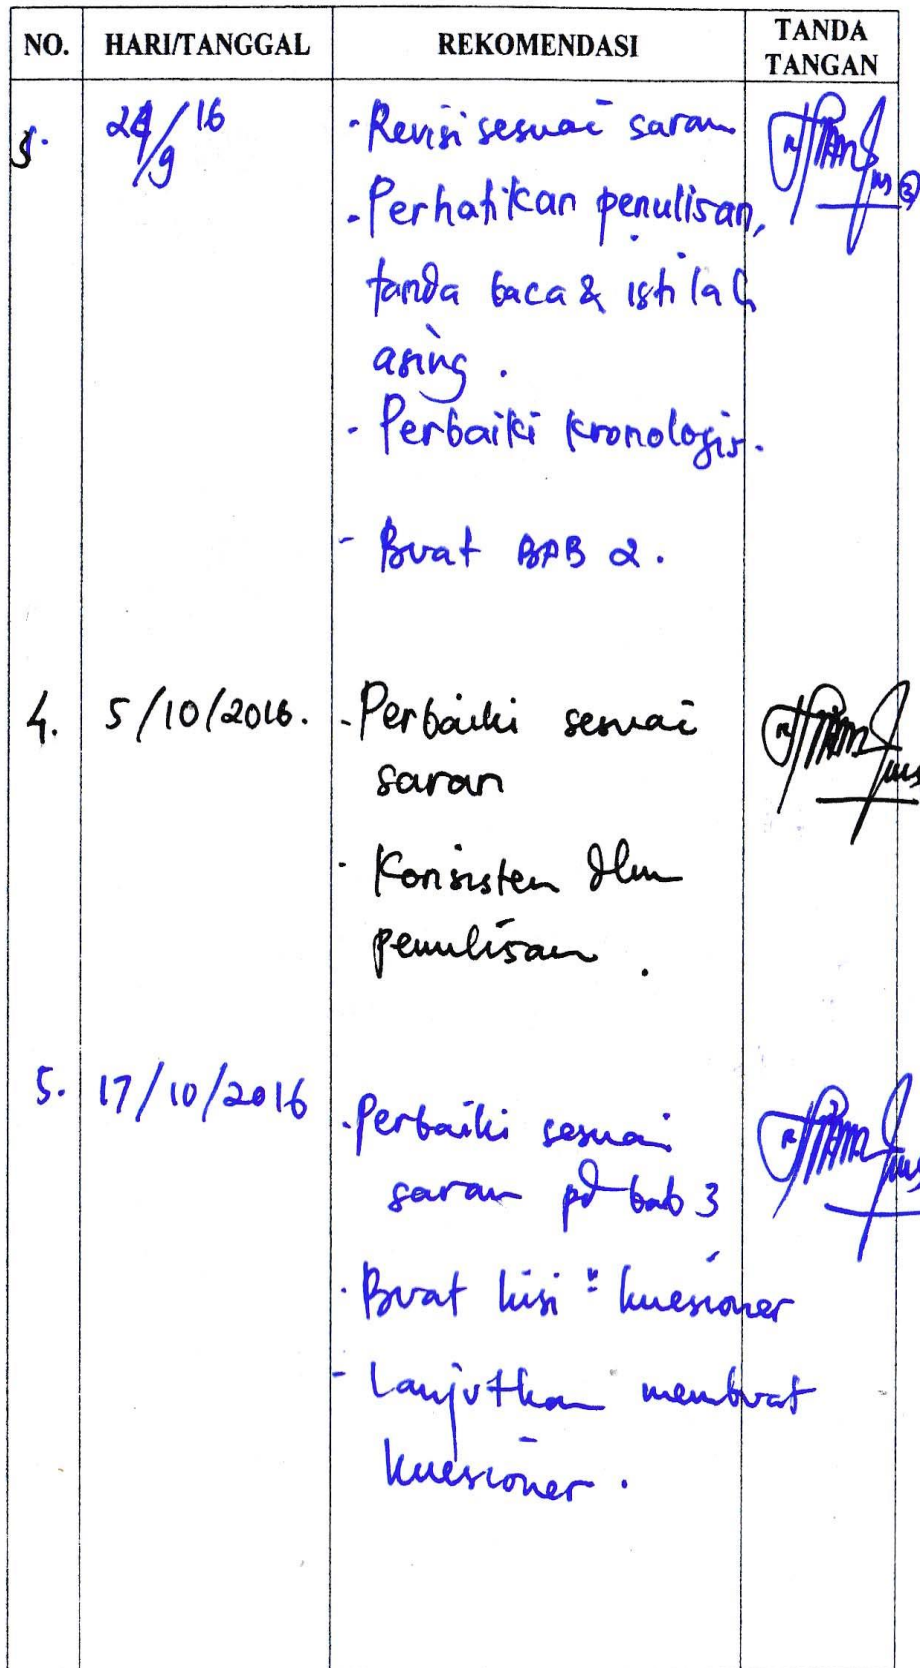 NO. HARI/TANGGAL REKOMENDASI TANDA TANGAN
3. /9 16 - Revisi sesuai saran
- Perhatikan penulisan,
tanda baca & istilah
asing.
- Perbaiki kronologis.
- Buat BAB 2.
4. 5/10/2016. - Perbaiki sesuai
saran
- Konsisten dlm
penulisan.
5. 17/10/2016 - Perbaiki sesuai
saran pd bab 3
- Buat kisi" kuesioner
- Lanjutkan membuat
kuesioner.